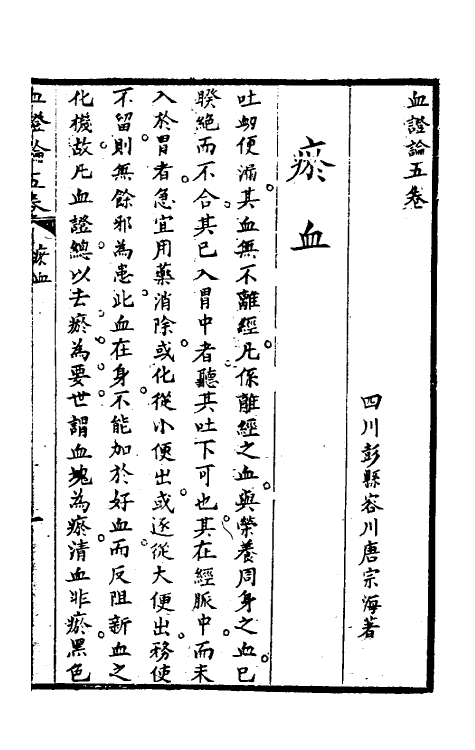 血證論五卷
四川彭縣容川唐宗海著
瘀血
吐衂便漏其血無不離經凡係離經之血與榮養周身之血已
睽絶而不合其已入胃中者聽其吐下可也其在經脈中而未
入於胃者急宜用藥消除或化從小便出或逐從大便出務使
不留則無餘邪為患此血在身不能加於好血而反阻新血之
化機故凡血證總以去瘀為要世謂血塊為瘀清血非瘀黑色
血證論五卷
瘀血
一